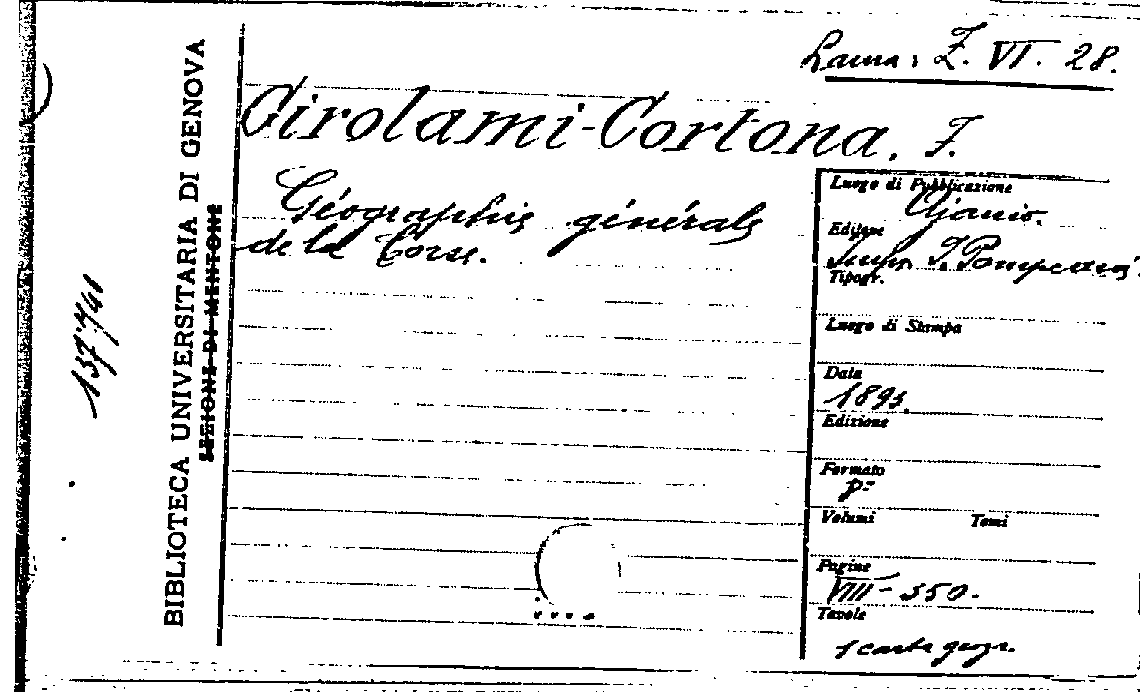 Lama: Z. VI. 28.
Girolami-Cortona. F.
Géographie générale
de la Corse.
Luogo di Pubblicazione
Ajaccio.
Editore
Impr. J. Pompeani
Tipogr.
Luogo di Stampa
Data
1893.
Edizione
Formato
8º
Volumi Tomi
Pagine
VIII-350.
Tavole
1 carta geogr.
BIBLIOTECA UNIVERSITARIA DI GENOVA
SEZIONE DI MENTONE
137741